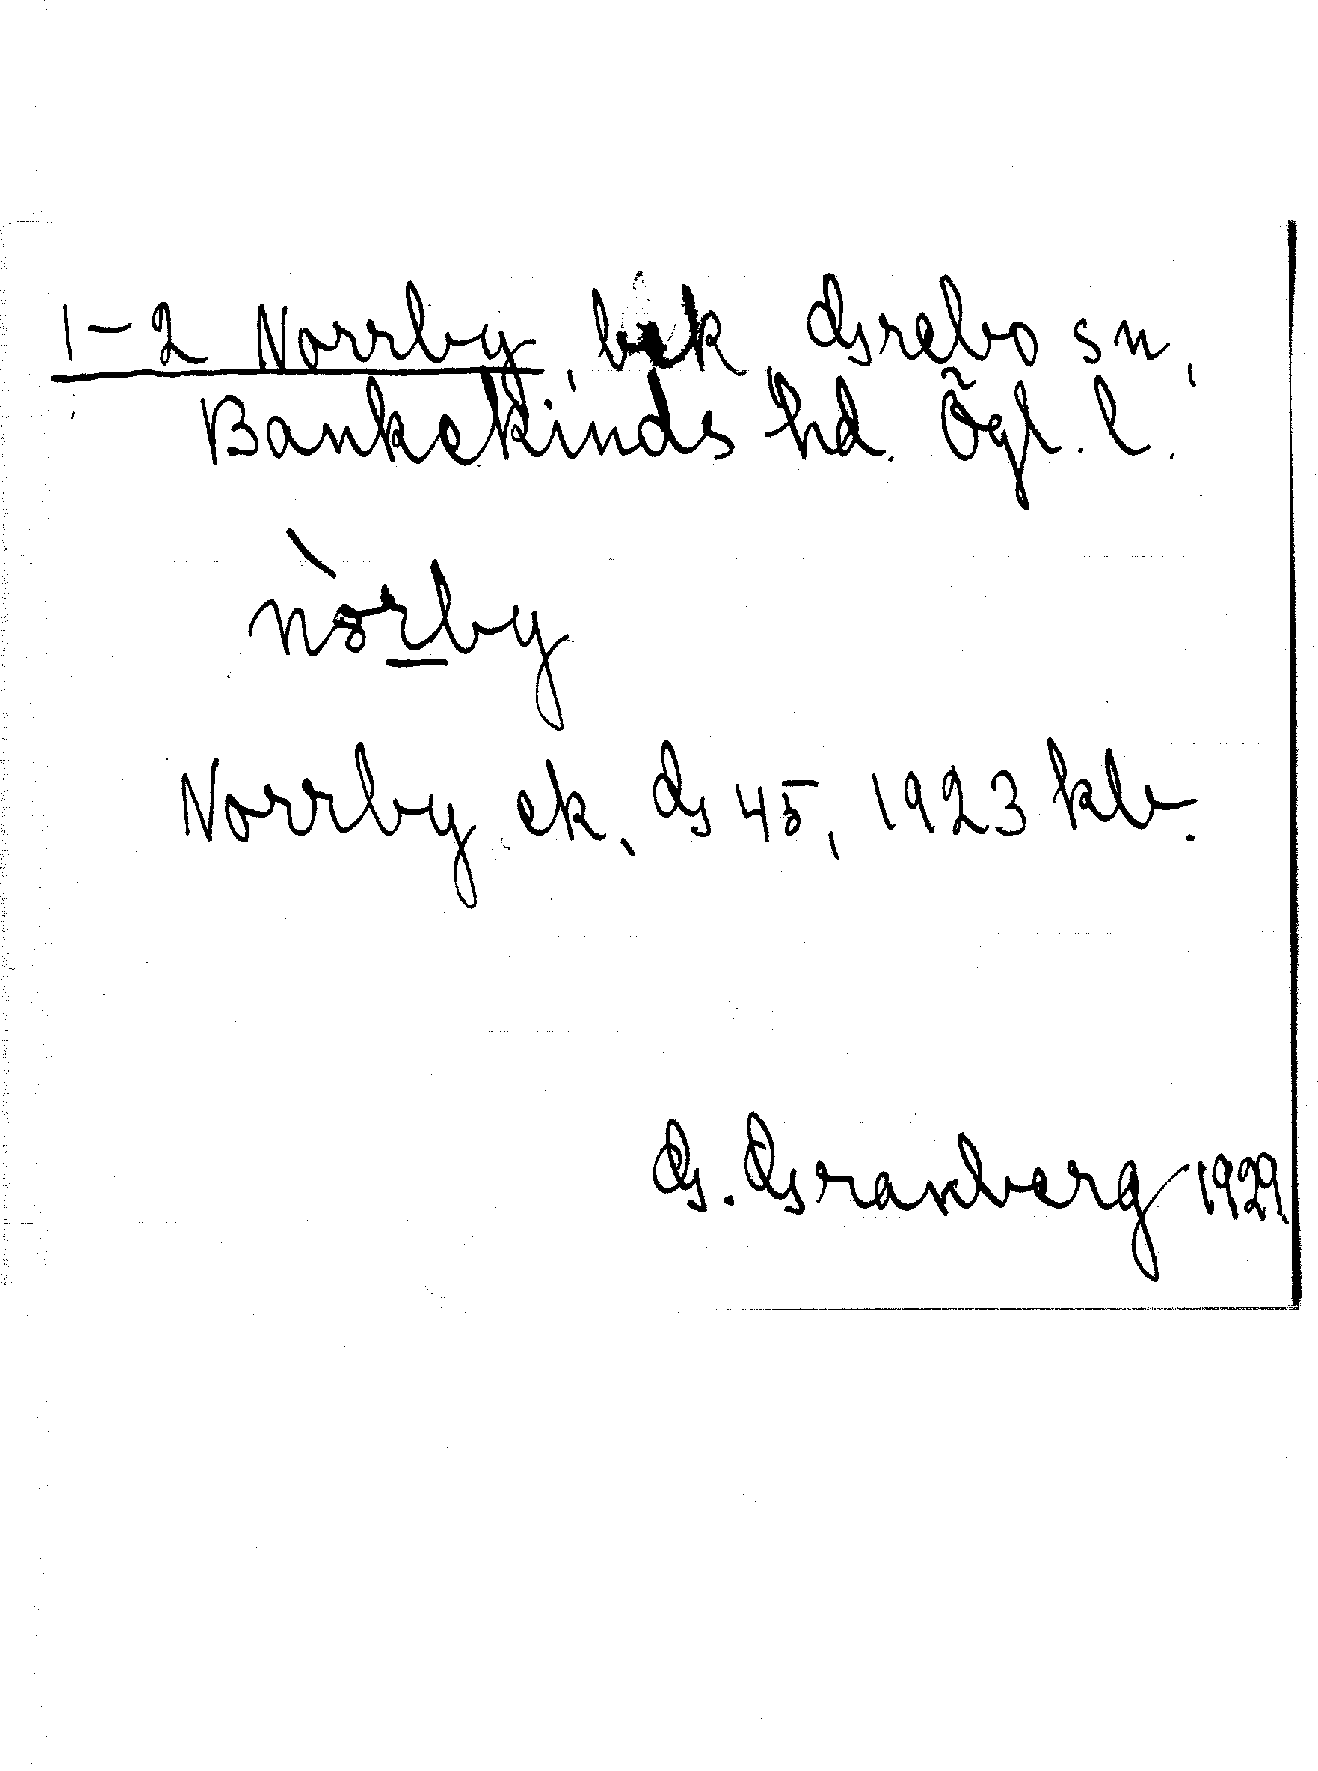 1-2 Norrby, bek, Grebo sn,
Bankekinds hd. Ögl. l.
nòrby
Norrby ek. G 45, 1923 kb.
G. Granberg 1929.